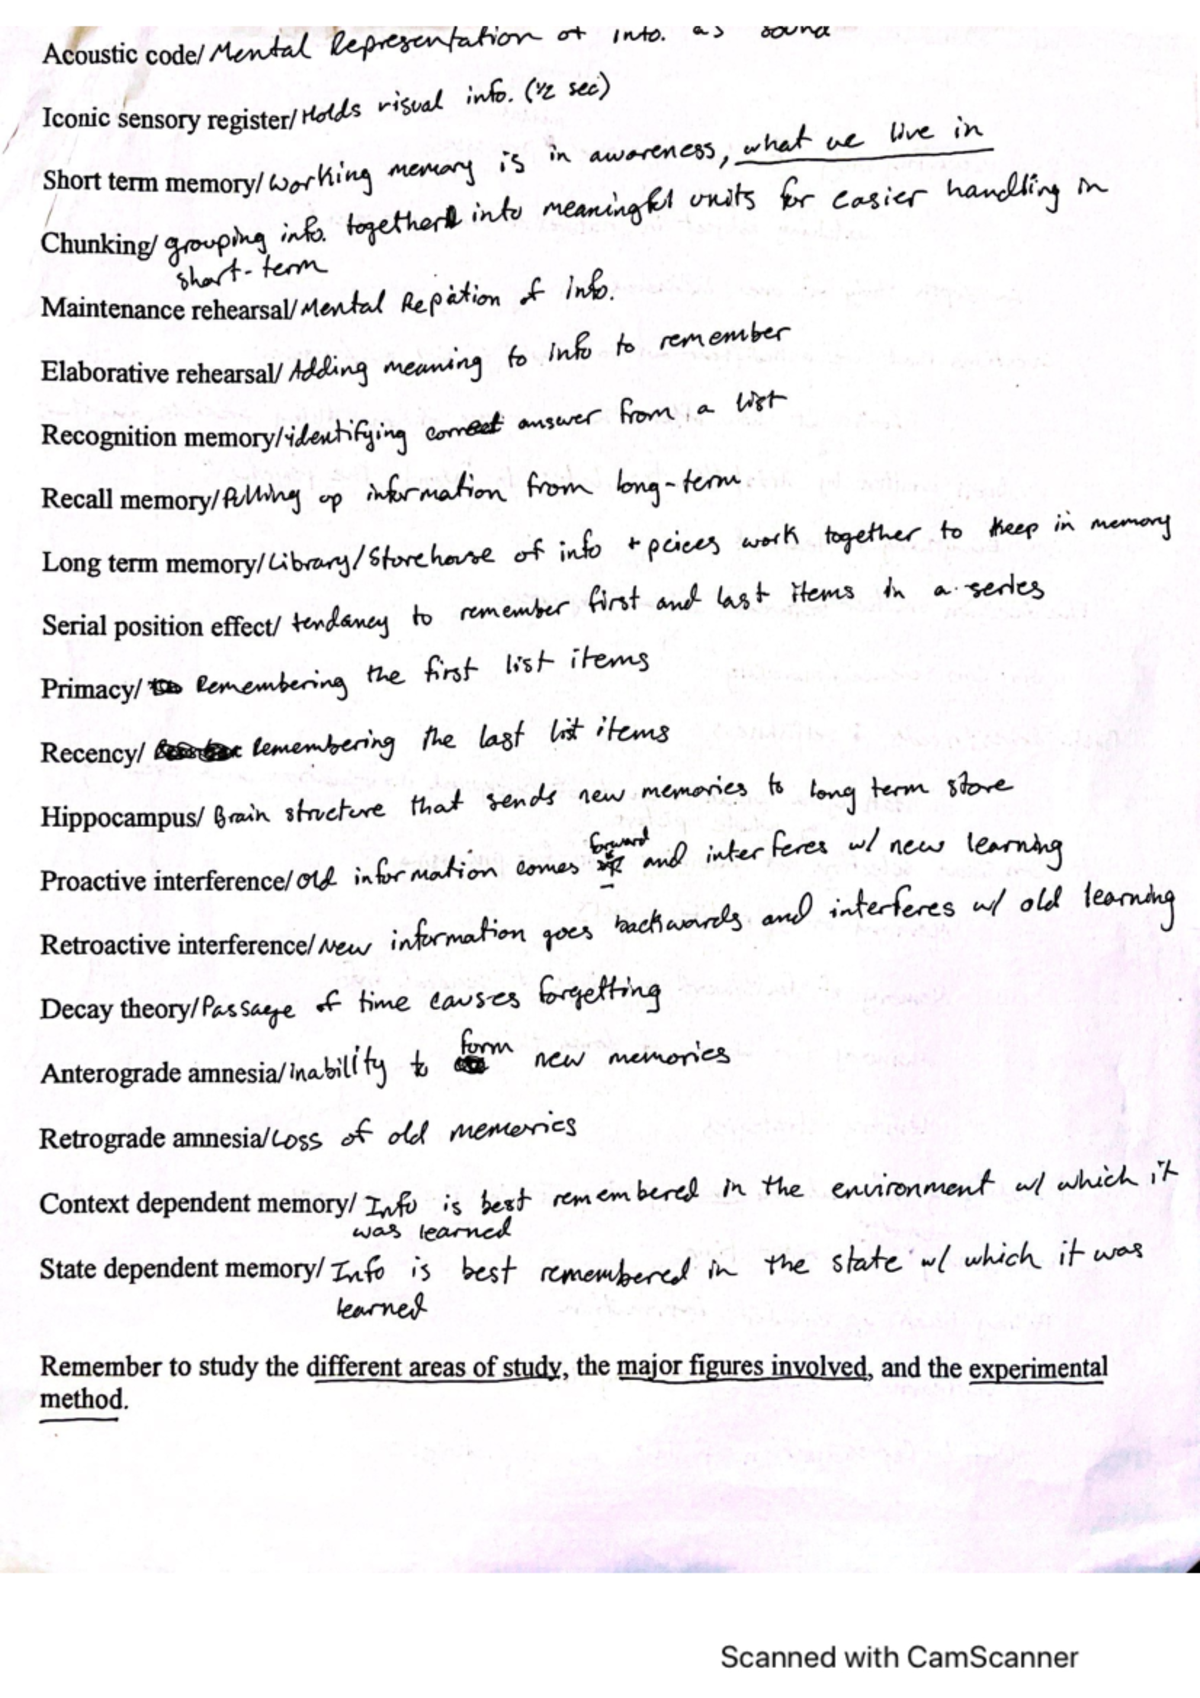 Acoustic code/ Mental Representation of info. as sound
Iconic sensory register/ Holds visual info. (1/2 sec)
Short term memory/ Working memory is in awareness, what we live in
Chunking/ grouping info. together into meaningful units for easier handling in
short-term
Maintenance rehearsal/ Mental Repition of info.
Elaborative rehearsal/ Adding meaning to info to remember
Recognition memory/ identifying correct answer from a list
Recall memory/ Pulling up information from long-term
Long term memory/ Library/Storehouse of info + peices work together to keep in memory
Serial position effect/ tendancy to remember first and last items in a series
Primacy/ Remembering the first list items
Recency/ Remembering the last list items
Hippocampus/ Brain structure that sends new memories to long term store
Proactive interference/ old information comes forward and interferes w/ new learning
Retroactive interference/ New information goes backwards and interferes w/ old learning
Decay theory/ Passage of time causes forgetting
Anterograde amnesia/ Inability to form new memories
Retrograde amnesia/ Loss of old memories
Context dependent memory/ Info is best remembered in the environment w/ which it
was learned
State dependent memory/ Info is best remembered in the state w/ which it was
learned
Remember to study the different areas of study, the major figures involved, and the experimental
method.
Scanned with CamScanner